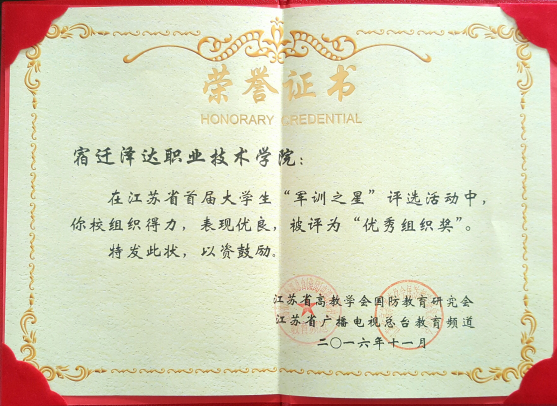 荣誉证书
HONORARY CREDENTIAL
宿迁泽达职业技术学院：
在江苏省首届大学生“军训之星”评选活动中，
你校组织得力，表现优良，被评为“优秀组织奖”。
特发此状，以资鼓励。
江苏省高教学会国防教育研究会
江苏省广播电视总台教育频道
二〇一六年十一月